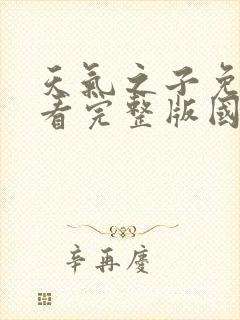 天氣之子免
看完整版國
辛再慶